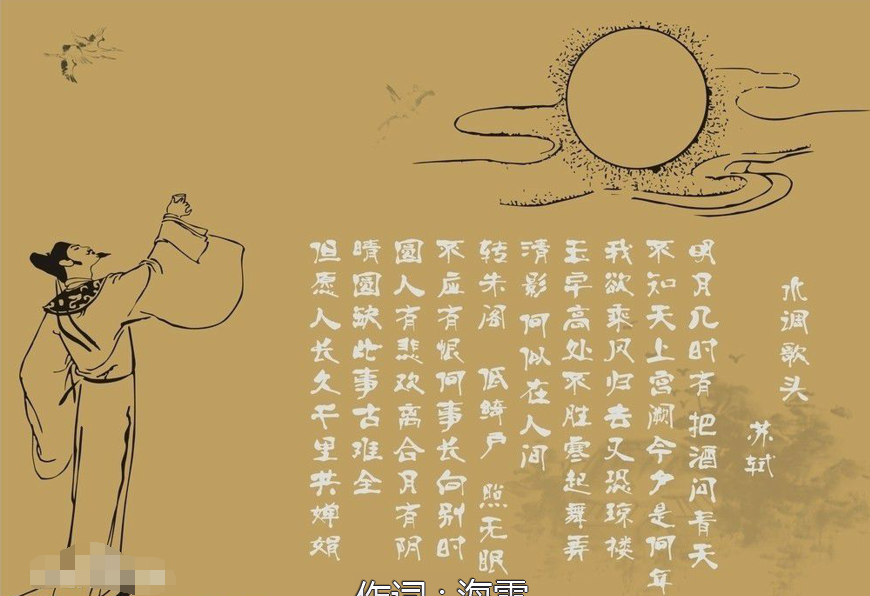 水调歌头
苏轼
明月几时有 把酒问青天
不知天上宫阙今夕是何年
我欲乘风归去又恐琼楼
玉宇高处不胜寒起舞弄
清影 何似在人间
转朱阁 低绮户 照无眠
不应有恨何事长向别时
圆人有悲欢离合月有阴
晴圆缺此事古难全
但愿人长久千里共婵娟
作词：海